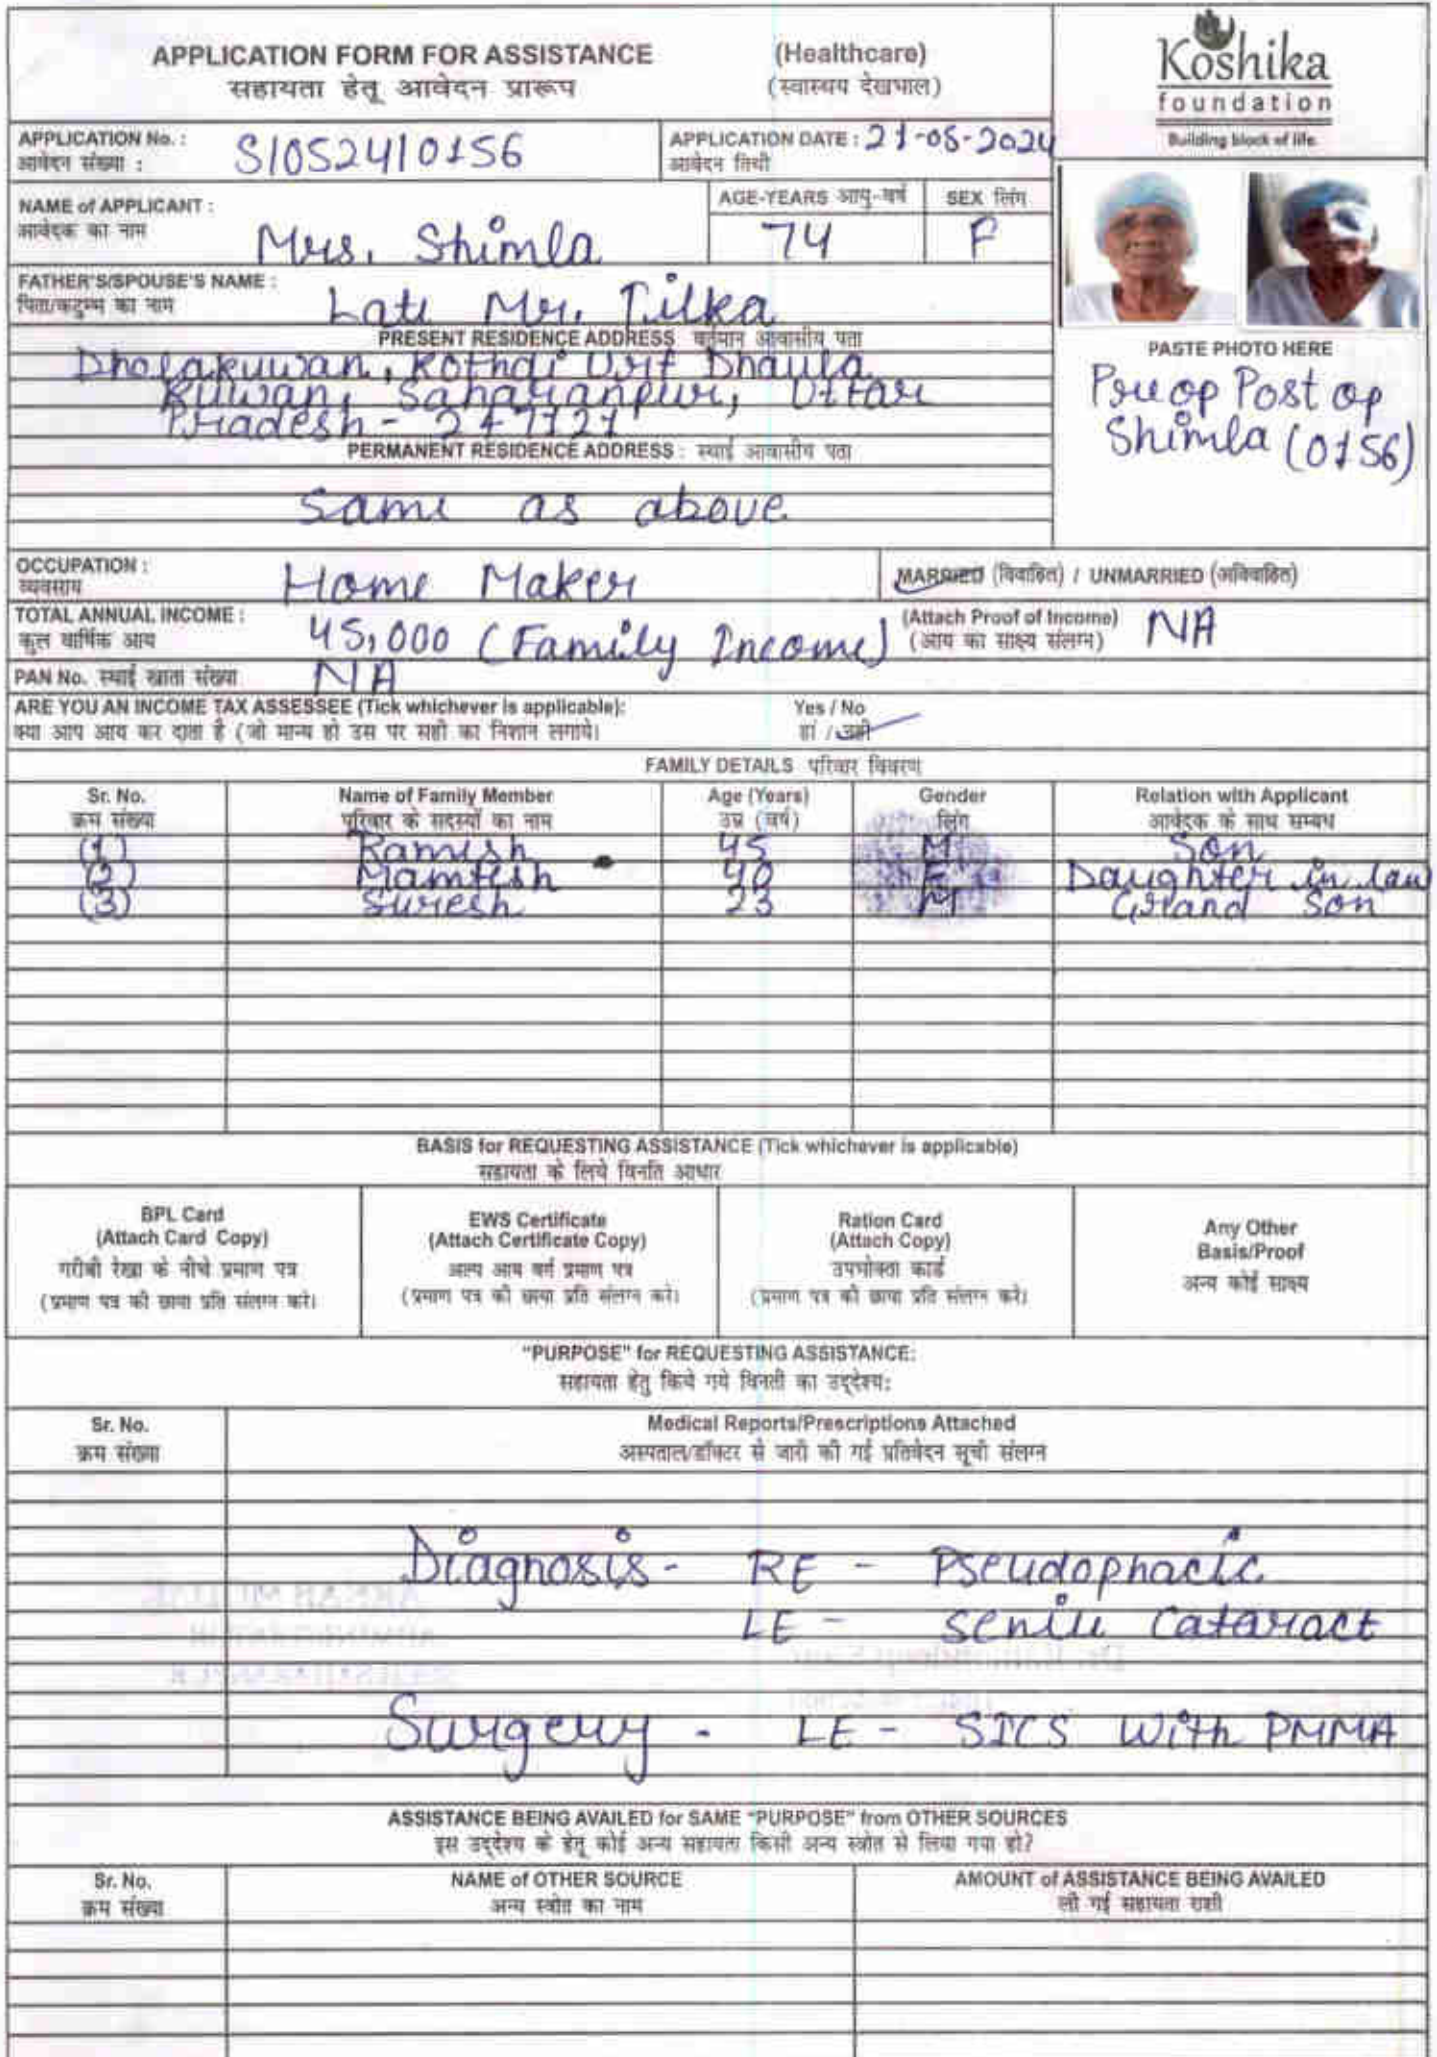 APPLICATION FORM FOR ASSISTANCE (Healthcare)
सहायता हेतू आवेदन प्रारूप (स्वास्थय देखभाल)
Koshika
foundation
Building block of life.
APPLICATION No. : S/0524/0156
आवेदन संख्या :
APPLICATION DATE : 21-05-2024
आवेदन तिथी
NAME of APPLICANT : Mrs. Shimla
आवेदक का नाम
AGE-YEARS आयु-वर्ष 74
SEX लिंग F
FATHER'S/SPOUSE'S NAME : Late Mr. Tilka
पिता/कटुम्ब का नाम
PRESENT RESIDENCE ADDRESS वर्तमान आवासीय पता
Dholakuwan, Kothdi Urf Dhaula
Kuwan, Saharanpur, Uttar
Pradesh - 247121
PERMANENT RESIDENCE ADDRESS : स्थाई आवासीय पता
Same as above
PASTE PHOTO HERE
Pre op Post op
Shimla (0156)
OCCUPATION : Home Maker
व्यवसाय
MARRIED (विवाहित) / UNMARRIED (अविवाहित)
TOTAL ANNUAL INCOME : 45,000 (Family Income)
कुल वार्षिक आय
(Attach Proof of Income) NA
(आय का साक्ष्य संलग्न)
PAN No. स्थाई खाता संख्या NA
ARE YOU AN INCOME TAX ASSESSEE (Tick whichever is applicable): Yes / No
क्या आप आय कर दाता है (जो मान्य हो उस पर सही का निशान लगाये। हां / नही
FAMILY DETAILS परिवार विवरण
Sr. No. Name of Family Member Age (Years) Gender Relation with Applicant
क्रम संख्या परिवार के सदस्यों का नाम उम्र (वर्ष) लिंग आवेदक के साथ सम्बध
(1) Ramesh 45 M Son
(2) Mamtesh 40 F Daughter in law
(3) Suresh 23 M Grand Son
BASIS for REQUESTING ASSISTANCE (Tick whichever is applicable)
सहायता के लिये विनति आधार
BPL Card
(Attach Card Copy)
गरीबी रेखा के नीचे प्रमाण पत्र
(प्रमाण पत्र की छाया प्रति संलग्न करे।
EWS Certificate
(Attach Certificate Copy)
अल्प आय वर्ग प्रमाण पत्र
(प्रमाण पत्र की छाया प्रति संलग्न करे।
Ration Card
(Attach Copy)
उपभोक्ता कार्ड
(प्रमाण पत्र की छाया प्रति संलग्न करे।
Any Other
Basis/Proof
अन्य कोई साक्ष्य
"PURPOSE" for REQUESTING ASSISTANCE:
सहायता हेतु किये गये विनती का उद्देश्य:
Sr. No. Medical Reports/Prescriptions Attached
क्रम संख्या अस्पताल/डॉक्टर से जारी की गई प्रतिवेदन सूची संलग्न
Diagnosis - RE - Pseudophacic
LE - Senile Cataract
Surgery - LE - SICS with PMMA
ASSISTANCE BEING AVAILED for SAME "PURPOSE" from OTHER SOURCES
इस उद्देश्य के हेतू कोई अन्य सहायता किसी अन्य स्त्रोत से लिया गया हो?
Sr. No. NAME of OTHER SOURCE AMOUNT of ASSISTANCE BEING AVAILED
क्रम संख्या अन्य स्त्रोत का नाम ली गई सहायता राशी